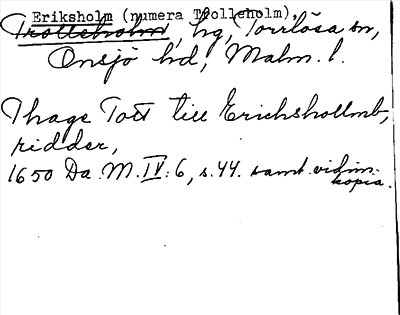 Eriksholm (numera Trolleholm).
Trolleholm, hg, Torrlösa sn,
Onsjö hd, Malm. l.
Thage Tott till Erichshollmb,
ridder,
1650 Da. M. IV: 6, s. 44. samt vidim.
kopia.